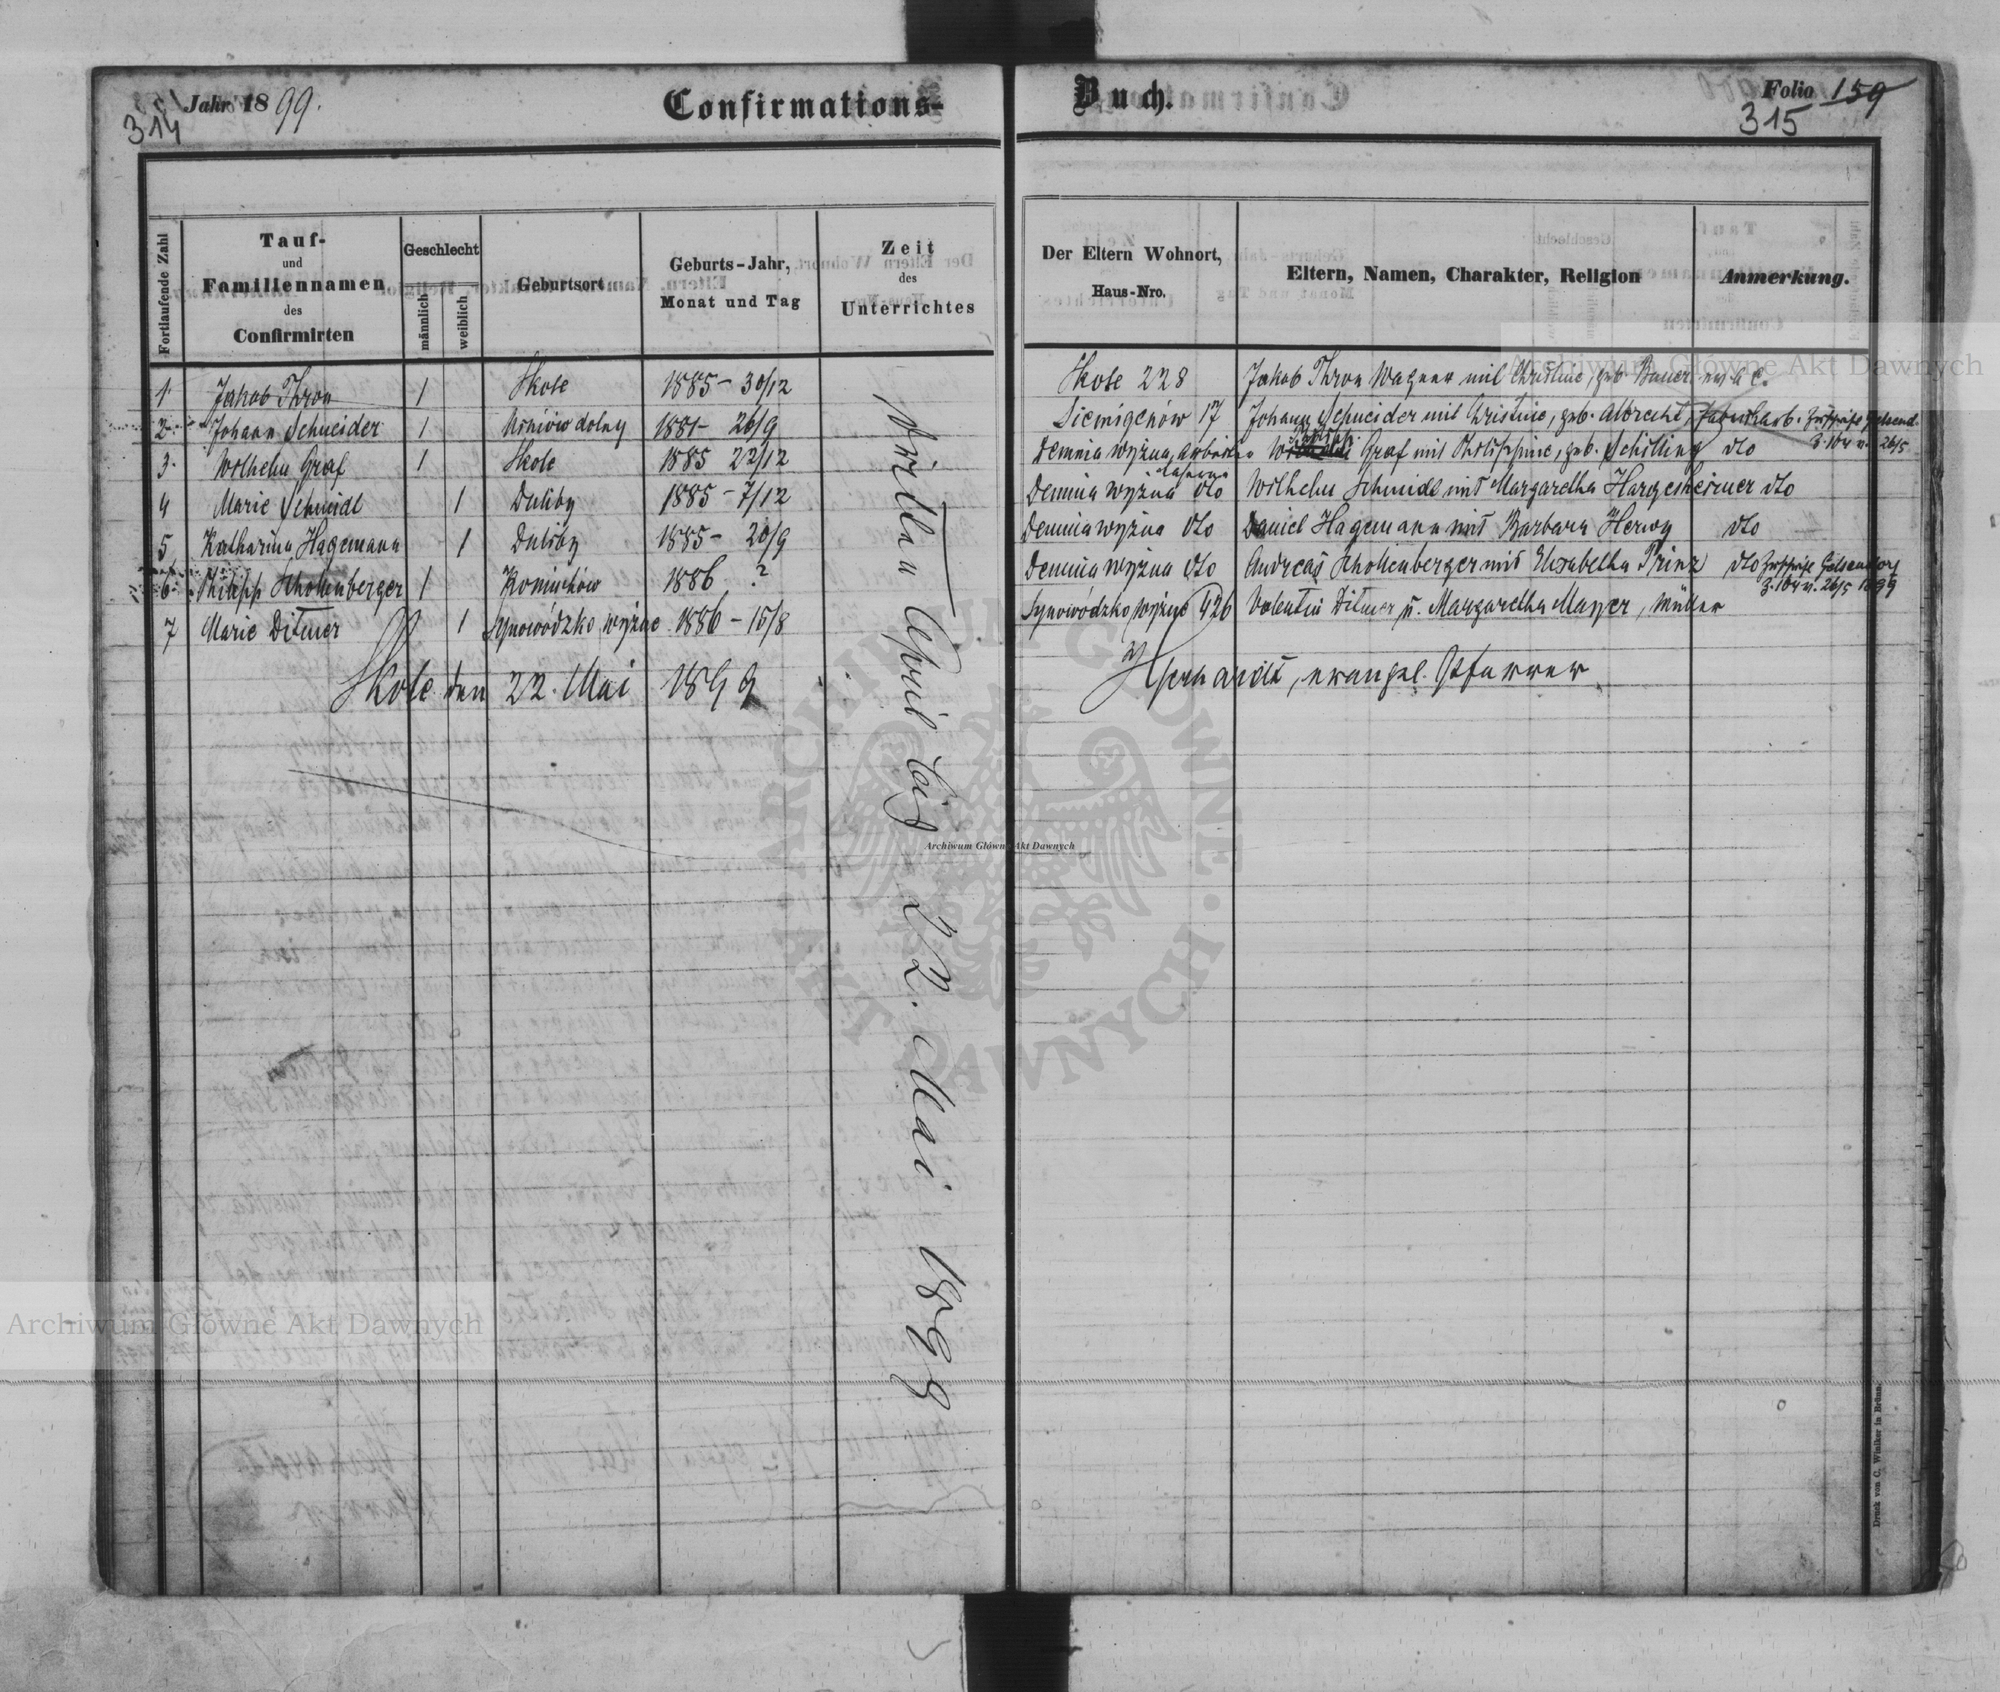 314
Jahr 1899.
Confirmations-
Buch.
Folio 159
315
Fortlaufende Zahl
Tauf-
und
Familiennamen
des
Confirmirten
Geschlecht
männlich
weiblich
Geburtsort
Geburts-Jahr,
Monat und Tag
Zeit
des
Unterrichtes
Der Eltern Wohnort,
Haus-Nro.
Eltern, Namen, Charakter, Religion
Anmerkung.
1. Jakob Thron 1 Skole 1885 - 30/12 Skole 228 Jakob Thron Wagner mit Christine, geb. Bauer
2. Johann Schneider 1 dolny 1881 - 26/9 Siemigenów 17 Johann Schneider mit Christine, geb. Albrecht,
3. Wilhelm Graf 1 Skole 1885 22/12 Demnia wyżna, Graf mit Philippine, geb. Schilling dto
4 Marie Schmidt 1 Duliby 1885 - 7/12 Demnia wyżna dto Wilhelm Schmidt mit Margaretha Hargesheimer dto
5 Katharina Hagemann 1 Duliby 1885 - 20/9 Demnia wyżna dto Daniel Hagemann mit Barbara Herwy dto
6. Philipp Schollenberger 1 Koniuchów 1886 ? Demnia wyżna dto Andreas Schollenberger mit Elisabetha Prinz dto
7 Marie Ditmer 1 Synowódzko wyżne 1886 - 15/8 Synowódzko wyżne 426 Valentin Ditmer u. Margaretha Mayer, Müller
April bis 22. Mai 1899
Skole den 22. Mai 1899
evangel. Pfarrer.
Druck von C. Winiker in Brünn.
Archiwum Główne Akt Dawnych
Archiwum Główne Akt Dawnych
Archiwum Główne Akt Dawnych
ARCHIWUM GŁÓWNE · AKT DAWNYCH ·